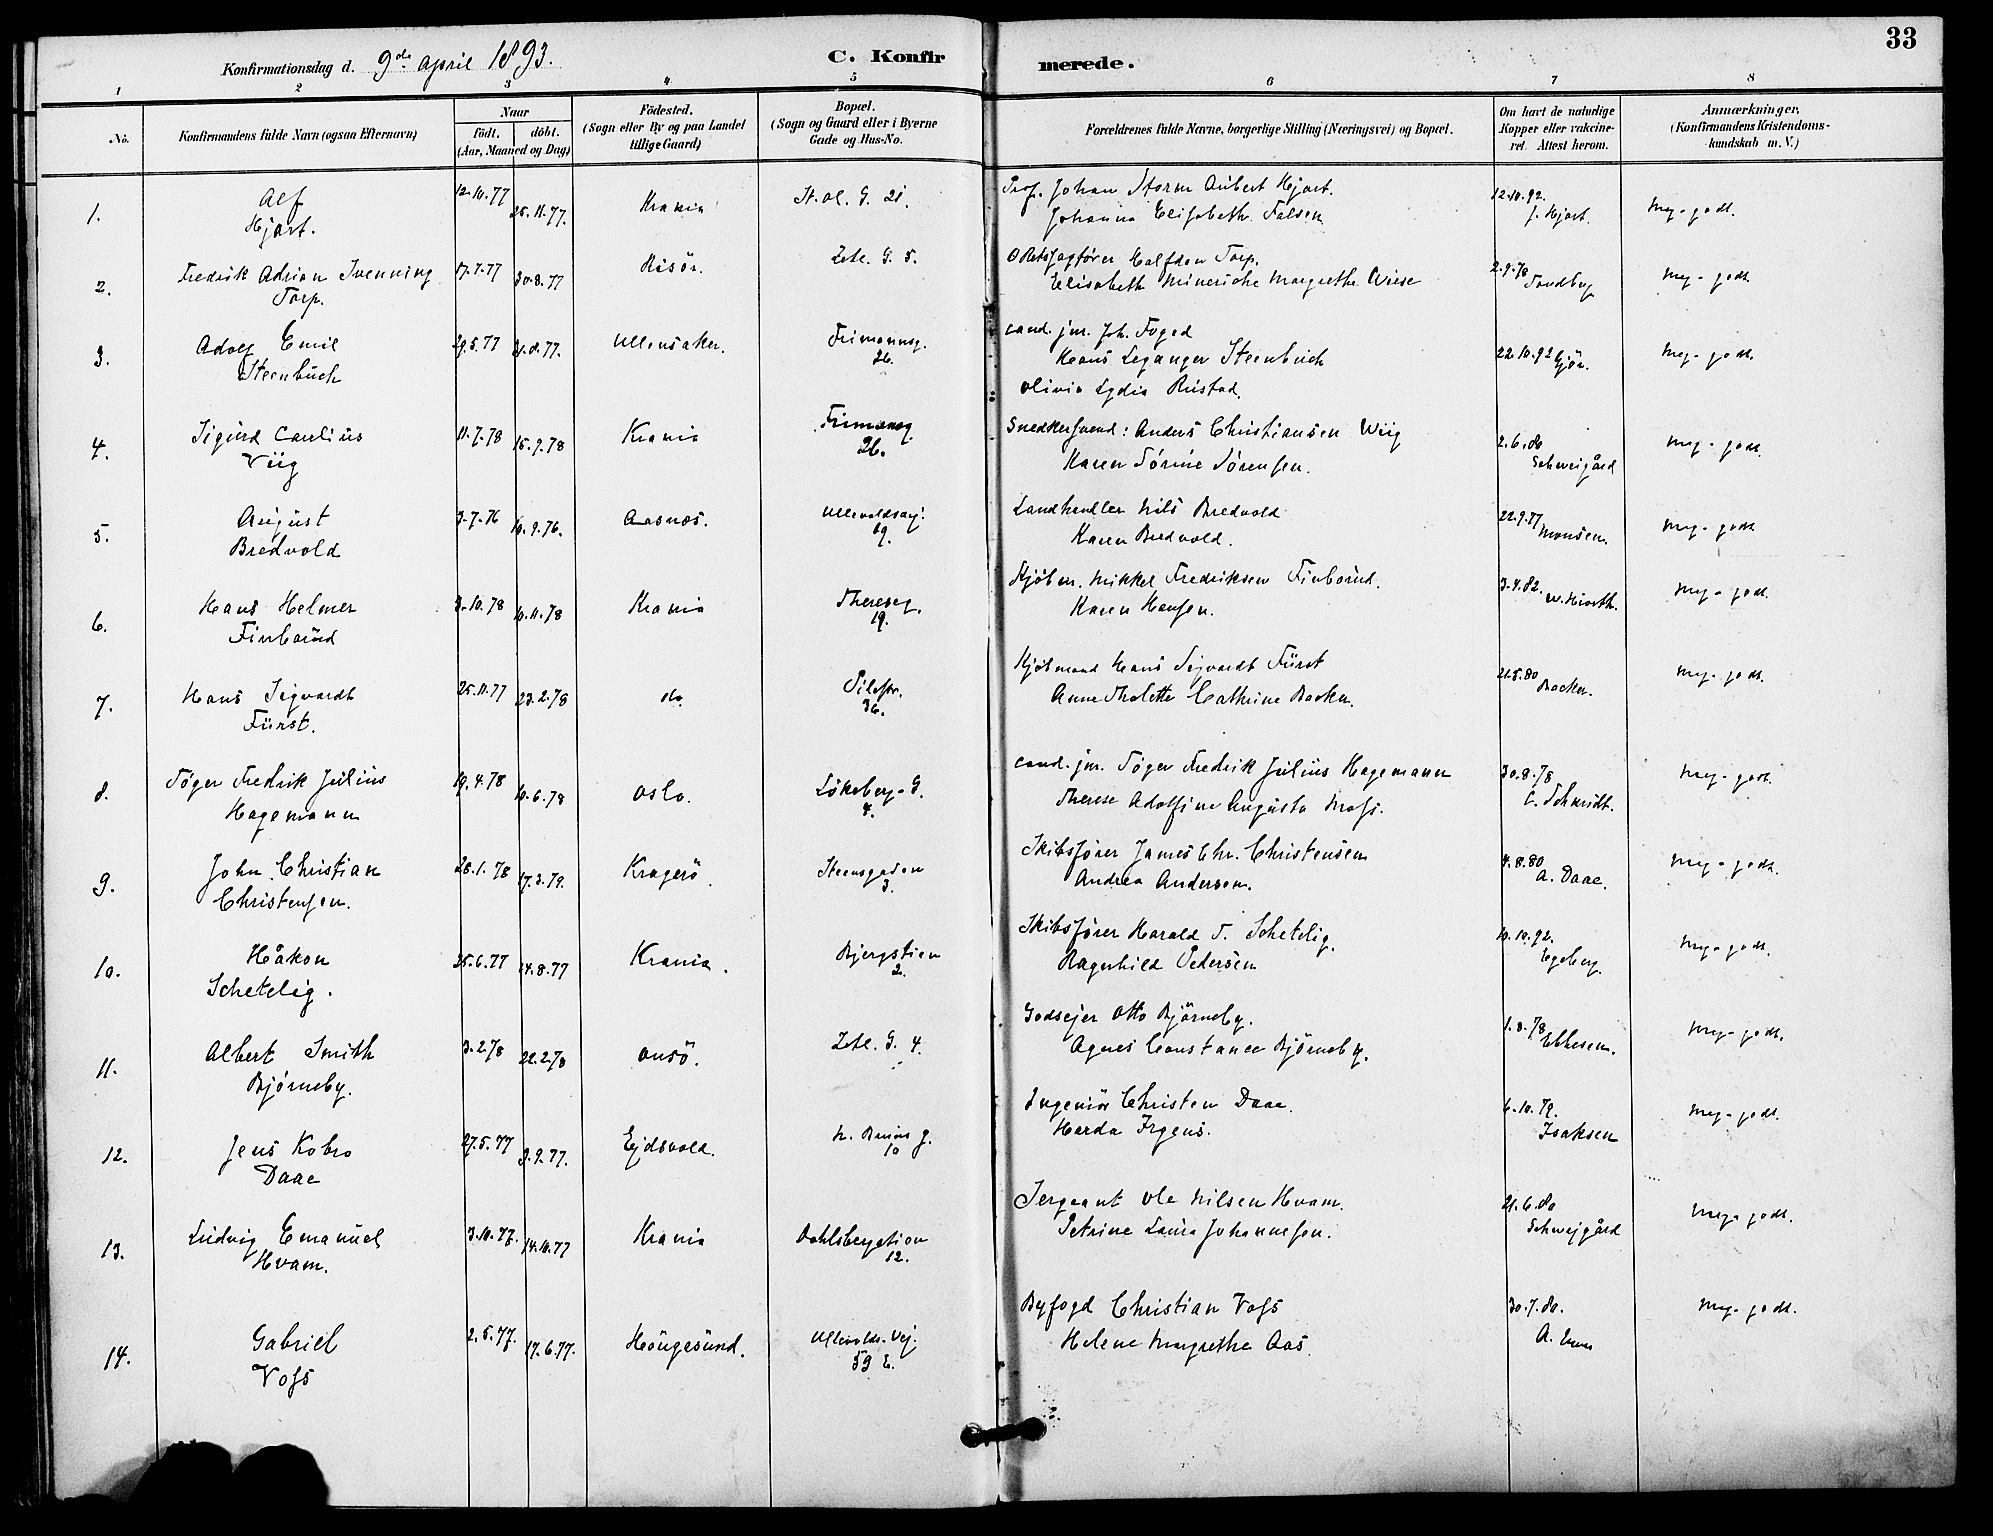 33
Konfirmationsdag d. 9de April 1893. C. Konfirmerede.
1 2 3 4 5 6 7 8
No. Konfirmandens fulde Navn (ogsaa Efternavn) Naar födt. döbt. (Aar, Maaned og Dag) Födested. (Sogn eller By og paa Landet tillige Gaard) Bopæl. (Sogn og Gaard eller i Byerne Gade og Hus-No. Forældrenes fulde Navne, borgerlige Stilling (Næringsvei) og Bopæl. Om havt de naturlige Kopper eller vakcineret. Attest herom. Anmærkninger, (Konfirmandens Kristendomskundskab m. V.)
1. Alf 12.10.77 25.11.77. Krania St. Ol. G. 21. Prof. Johan Storm Aubert Hjort. 12.10.92. Meg. godt.
Hjort. Johanna Elisabeth Falsen J. Hjort.
2. Fredrik Adrian Svenning 17.7.77 30.8.77 Risör. Zetl. G. 5. ORetssagförer Halfdan Torp. 2.9.78 Sandberg Meg. godt.
Torp. Elisabeth Margrethe Wiese
3. Adolf Emil 29.5.77 21.8.77. Ullensaker. Frimannsg. cand. jur. Joh. Foged 22.10.92 Meg. godt.
Steenbuch 26. Hans Leganger Steenbuch
Olivia Lydia Rustad.
4. Sigurd Carelius 11.7.78 15.9.78 Krania Frimannsg Snedkersvend: Anders Christiansen Wiig 2.6.80 Meg. godt.
Viig 26. Karen Sörine Sörensen. Schweigård
5. August 3.7.76 10.9.76. Aasnæs. Ullevoldsvej. Landhandler Nils Bredvold 22.9.77 Monsen. Meg. godt
Bredvold 69. Karen Bredvold.
6. Hans Helmer 3.10.78 10.11.78 Krania Thereseg. Kjöbm. Mikkel Fredriksen Finborud. 3.4.82. Meg. godt.
Finborud 19. Karen Hansen.
7. Hans Sigvardt 25.11.77 23.2.78 do Pilestr. Kjöbmand Hans Sigvardt Fürst 21.5.80 Backer. Meg. godt.
Fürst. 36. Anne Thalette Cathrine Backer.
8. Töger Fredrik Julius 19.4.78 10.6.78 Oslo. Lökeberg. G. cand. jur. Töger Fredrik Julius Hagemann 30.8.78 Meg. godt.
Hagemann 4. Therese Adolfine Augusta Moss. C. Schmidt.
9. John Christian 28.1.78 17.3.79. Kragerö. Steensgaden Skibsförer James Chr. Christensen 4.8.80 Meg. godt.
Christensen. 3. Andrea Andersen. A. Daae.
10. Håkon 25.6.77 14.8.77 Krania. Bjergstien Skibsförer Harald S. Schetelig. 10.10.92. Meg. godt.
Schetelig. 2. Ragnhild Pedersen Egeberg.
11. Albert Smith 3.2.78 22.2.78 Onsö. Zetl. G. 4. Godsejer Otto Björneby. 1.8.78 Ebbesen. Meg. godt.
Björneby. Agnes Constance Björneby.
12. Jens Kobro 27.5.77 9.9.77. Ejdsvold. Ingeniör Christen Daae. 6.10.79. Meg. godt.
Daae 10 Harda Irgens. Isaksen
13. Ludvig Emanuel 3.10.77. 14.10.77 Krania Dahlsbergstien Sergeant Ole Nilsen Hvam. 21.6.80 Meg. godt.
Hvam. 12. Petrine Laura Johannesen. Schweigård
14. Gabriel 2.5.77. 17.6.77. Höugesund. Ullevolds. Vej. Byfogd Christian Voss 30.7.80. Meg. godt.
Voss 59 Helene Margrethe Aas. A.